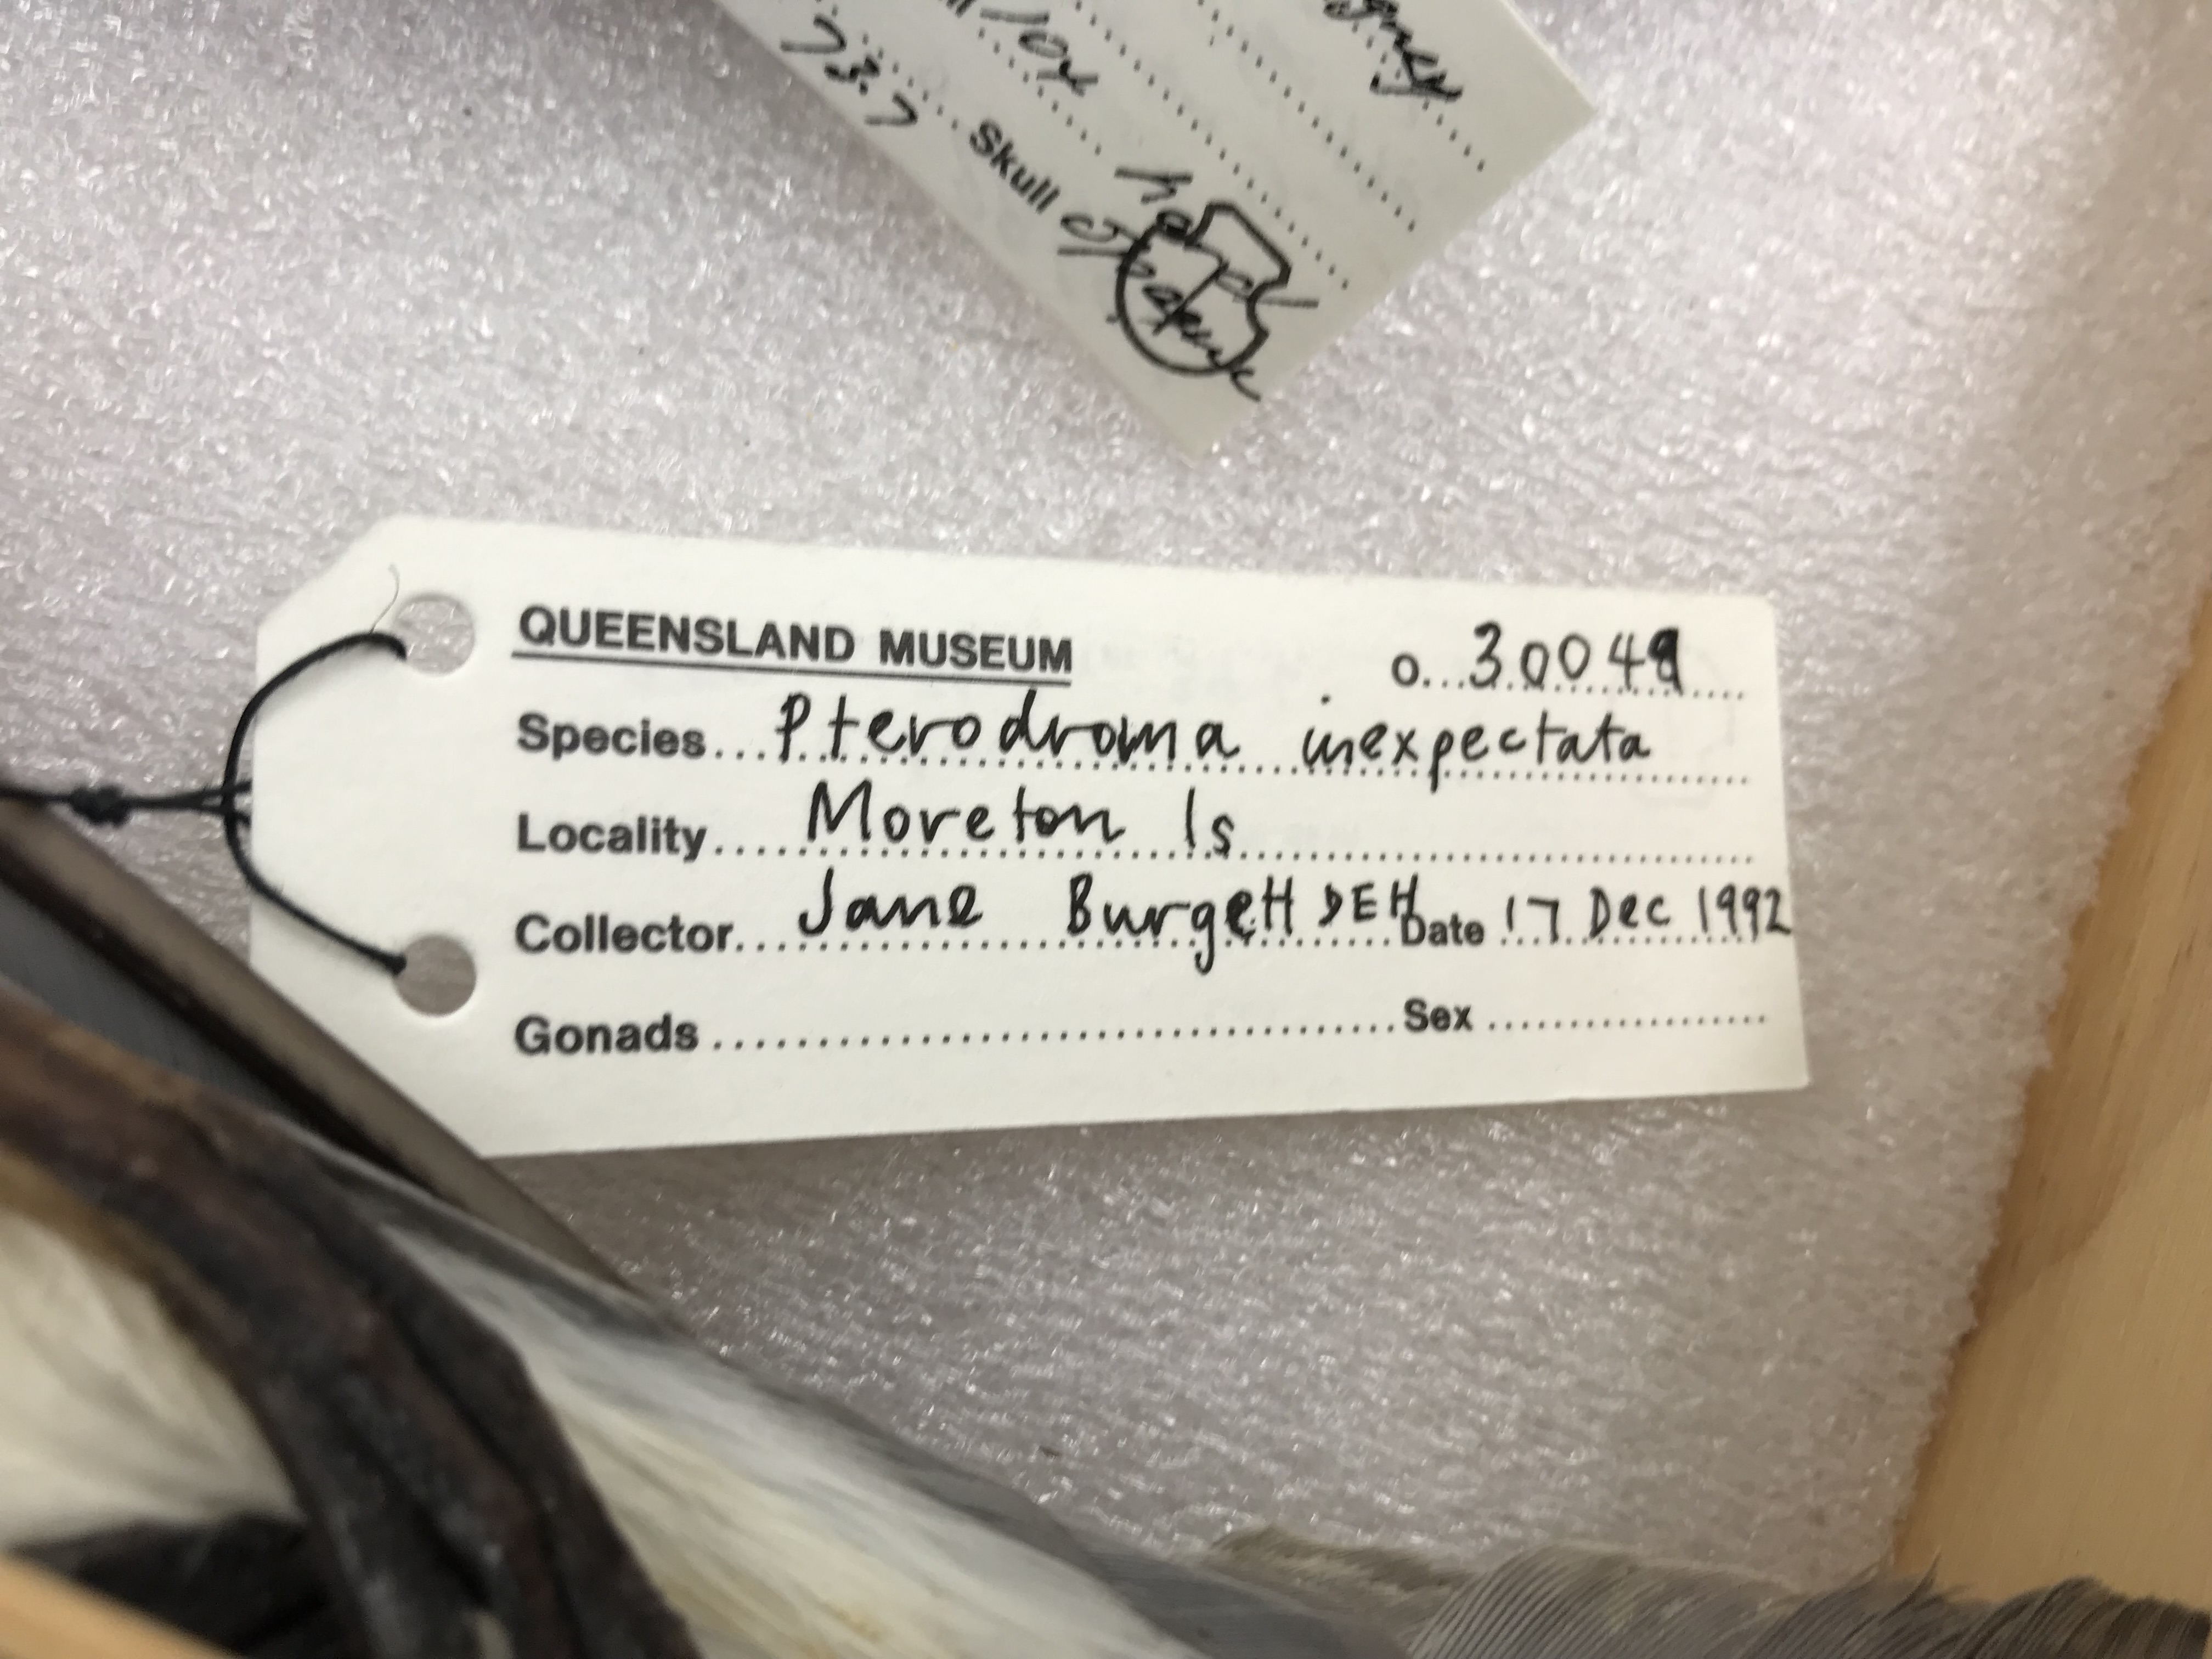 73.7 Skull
QUEENSLAND MUSEUM o...30049
Species...Pterodroma inexpectata
Locality....Moreton Is
Collector...Jane Burgett DEH Date 17 Dec 1992
Gonads ........ Sex ........